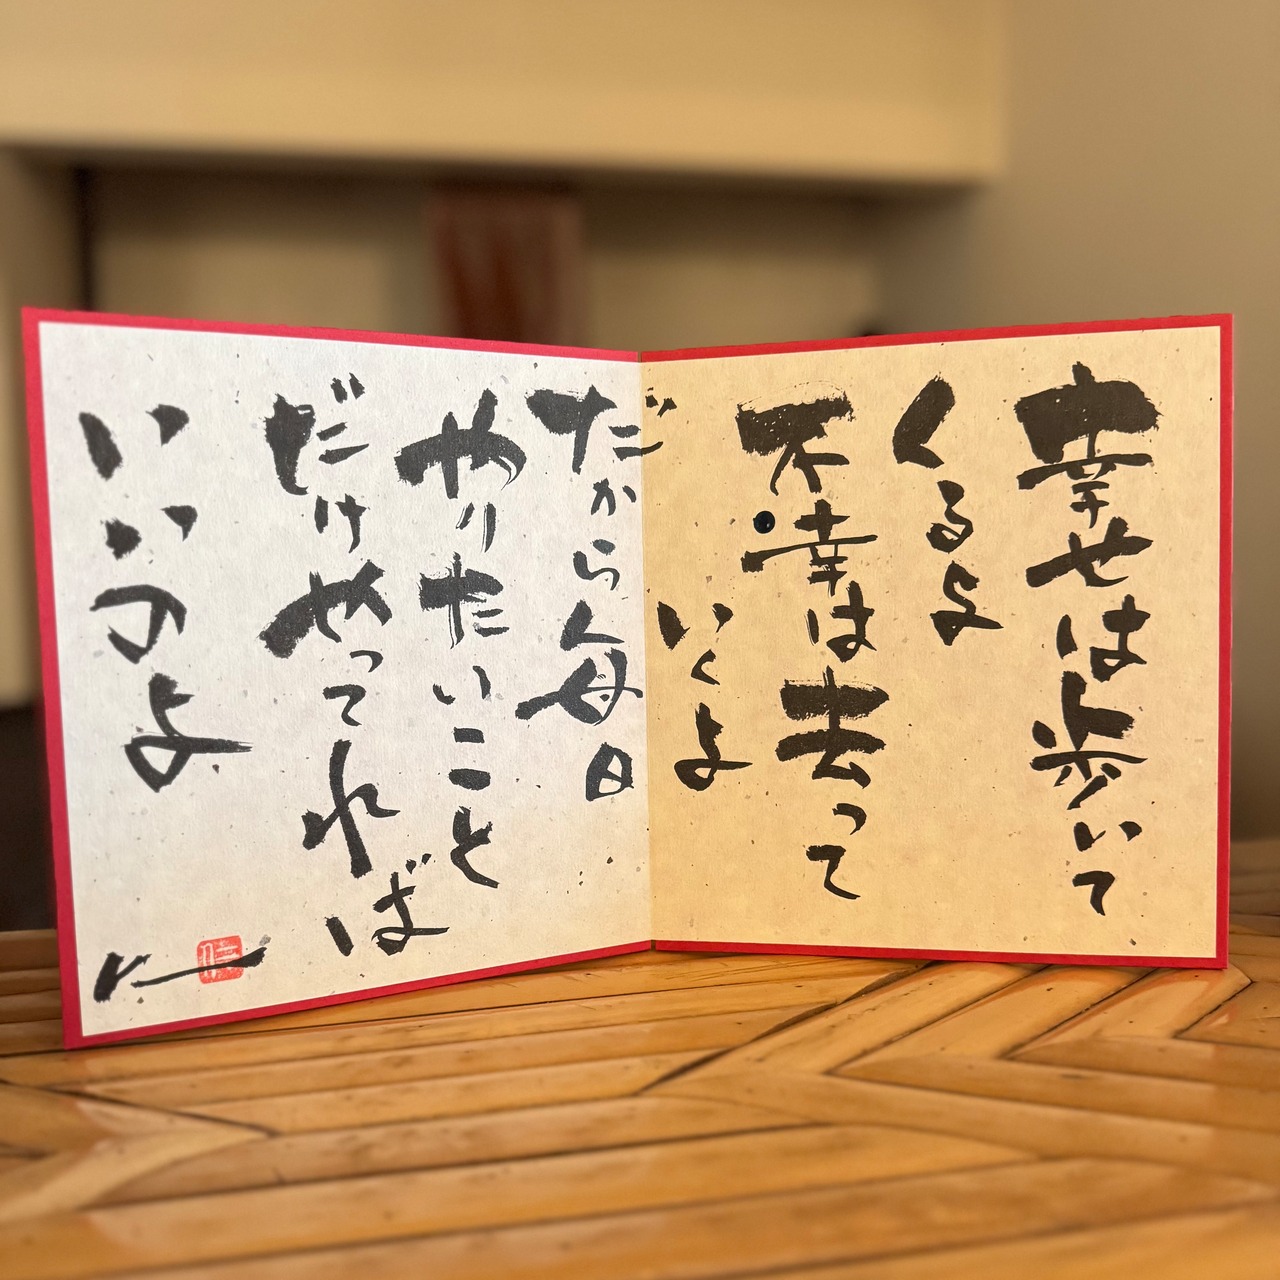 幸せは歩いて
くるよ
不幸は去って
いくよ
だから毎日
やりたいこと
だけやってれば
いいのよ